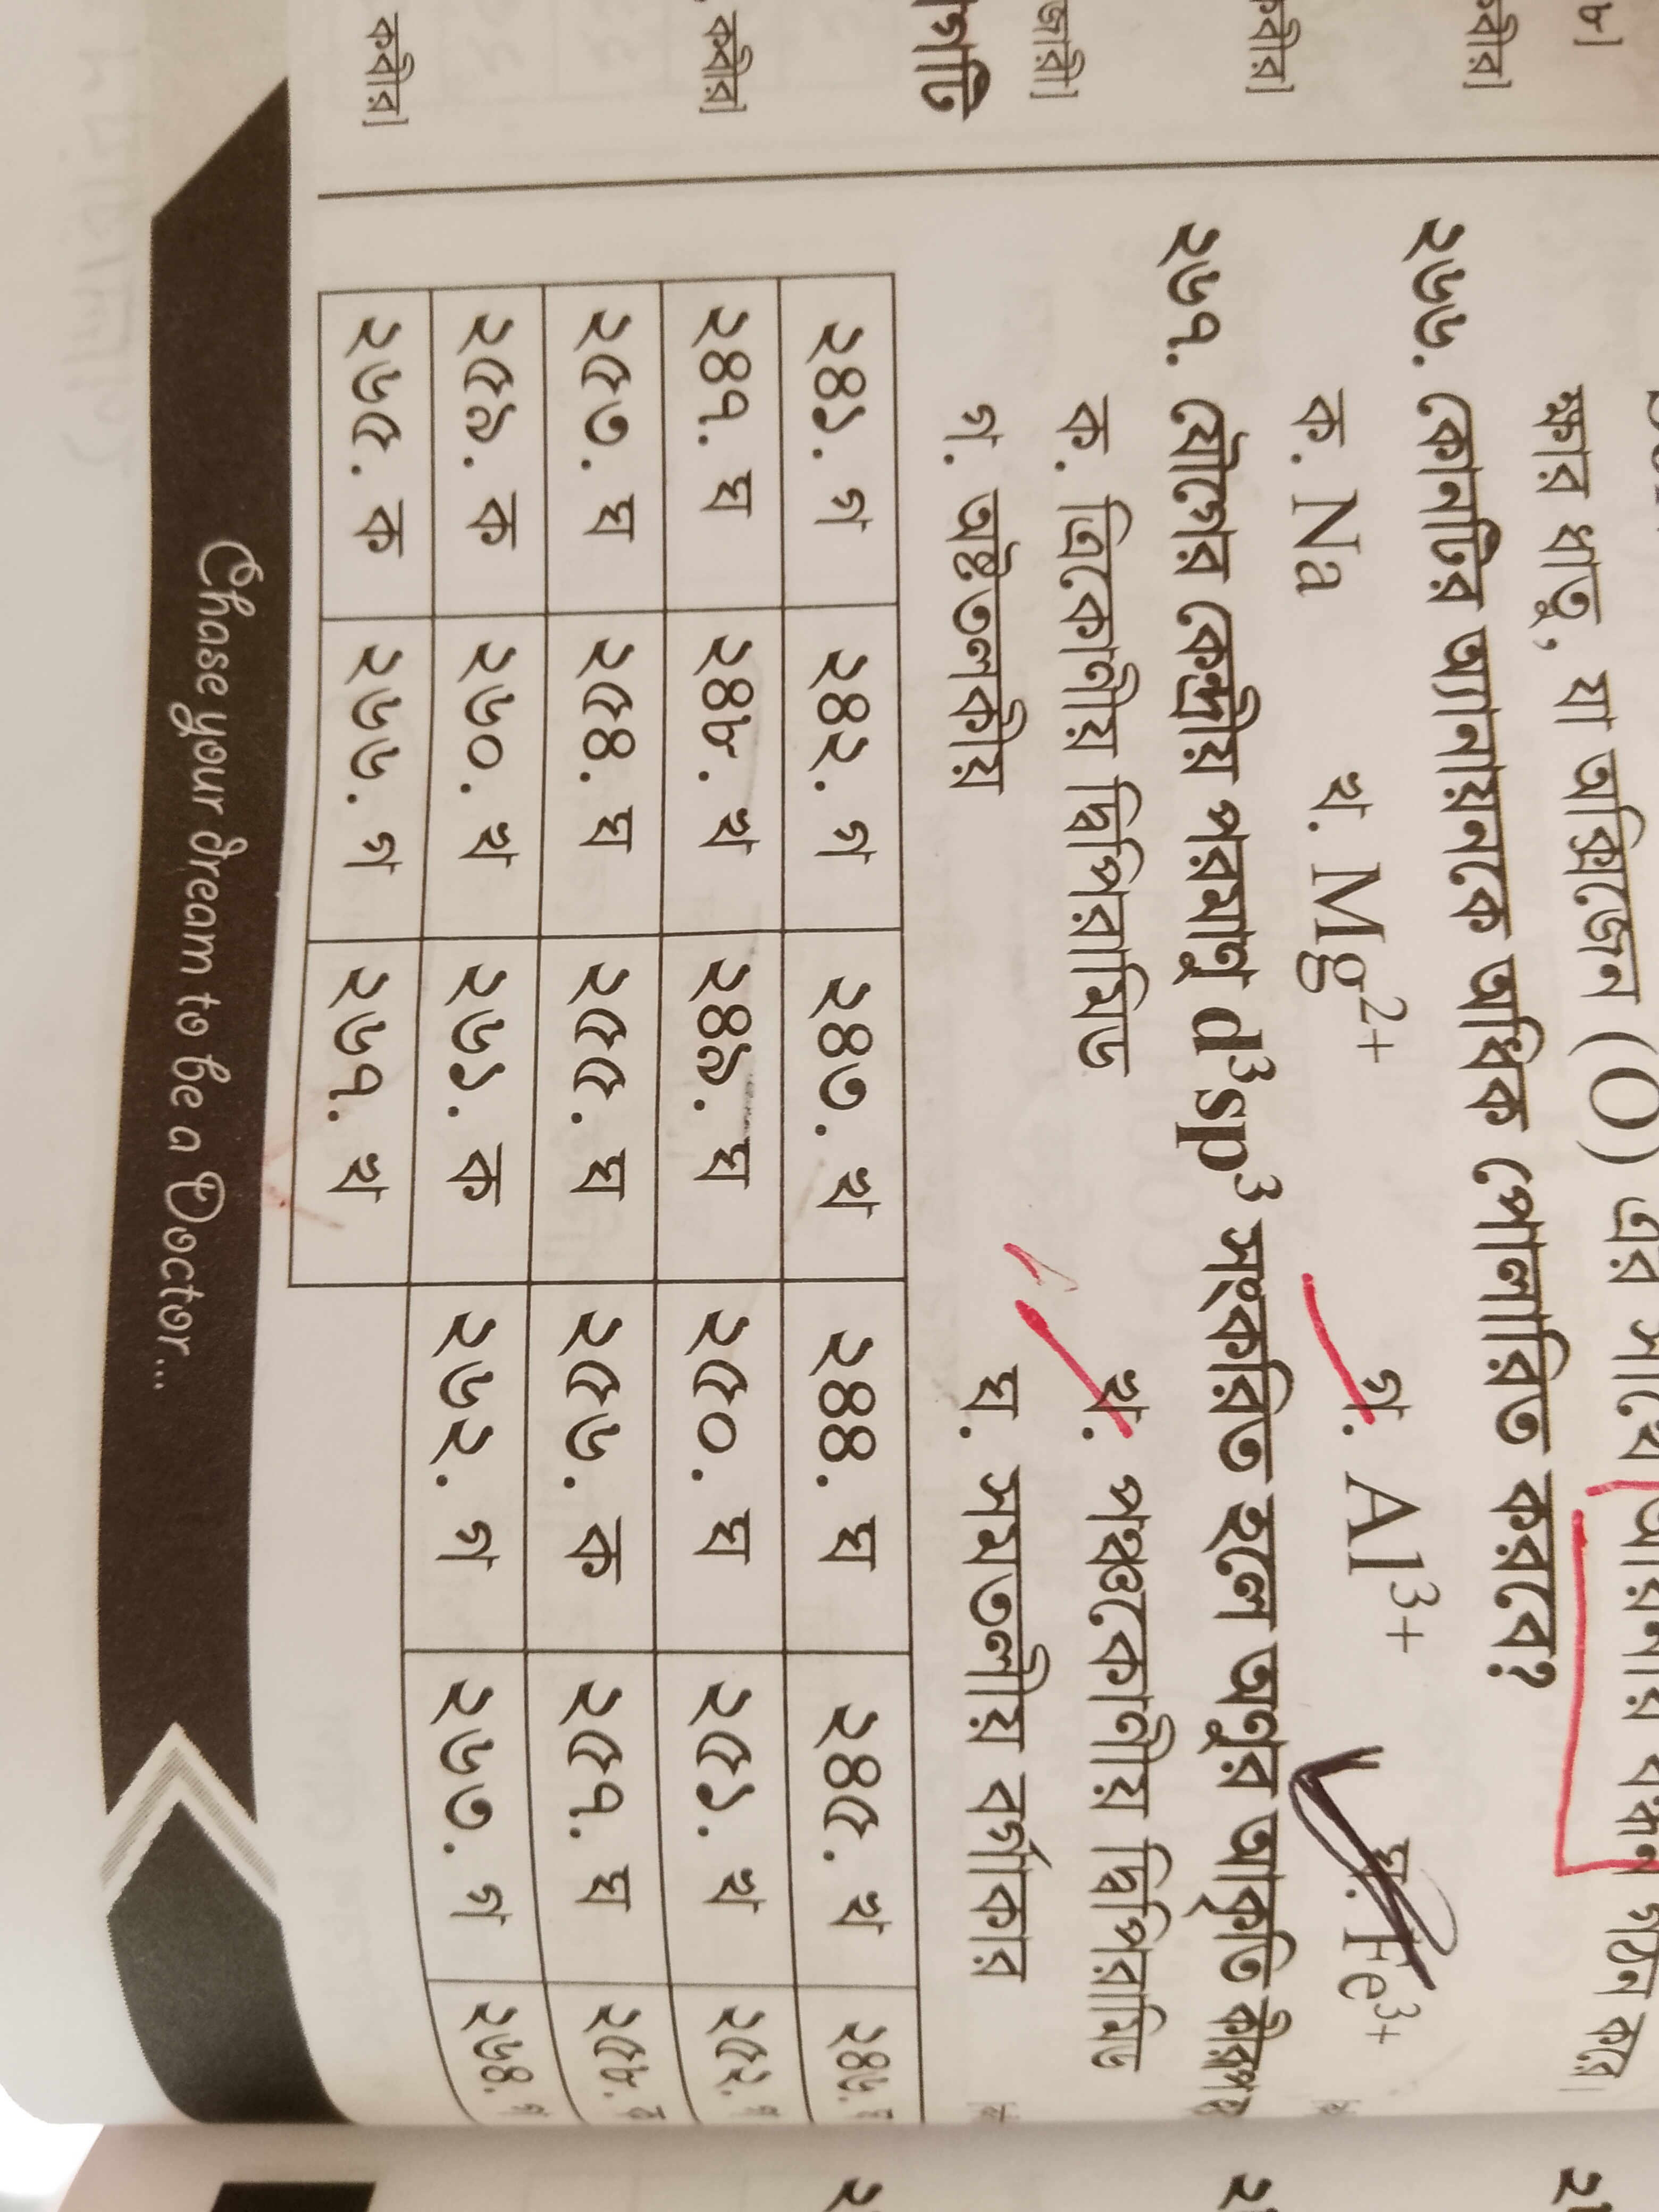 ক্ষার ধাতু, যা অক্সিজেন (O) এর সাথে
২৬৬. কোনটির অ্যানায়নকে অধিক পোলারিত করবে?
ক. Na খ. Mg²⁺ গ. Al³⁺ ঘ. Fe³⁺
২৬৭. যৌগের কেন্দ্রীয় পরমাণু d³sp³ সংকরিত হলে অণুর আকৃতি কীরূপ
ক. ত্রিকোণীয় দ্বিপিরামিড খ. পঞ্চকোণীয় দ্বিপিরামিড
গ. অষ্টতলকীয় ঘ. সমতলীয় বর্গাকার
২৪১. গ ২৪২. গ ২৪৩. খ ২৪৪. ঘ ২৪৫. খ ২৪৬.
২৪৭. ঘ ২৪৮. খ ২৪৯. ঘ ২৫০. ঘ ২৫১. খ ২৫২.
২৫৩. ঘ ২৫৪. ঘ ২৫৫. ঘ ২৫৬. ক ২৫৭. ঘ ২৫৮.
২৫৯. ক ২৬০. খ ২৬১. ক ২৬২. গ ২৬৩. গ ২৬৪.
২৬৫. ক ২৬৬. গ ২৬৭. খ
Chase your dream to be a Doctor...